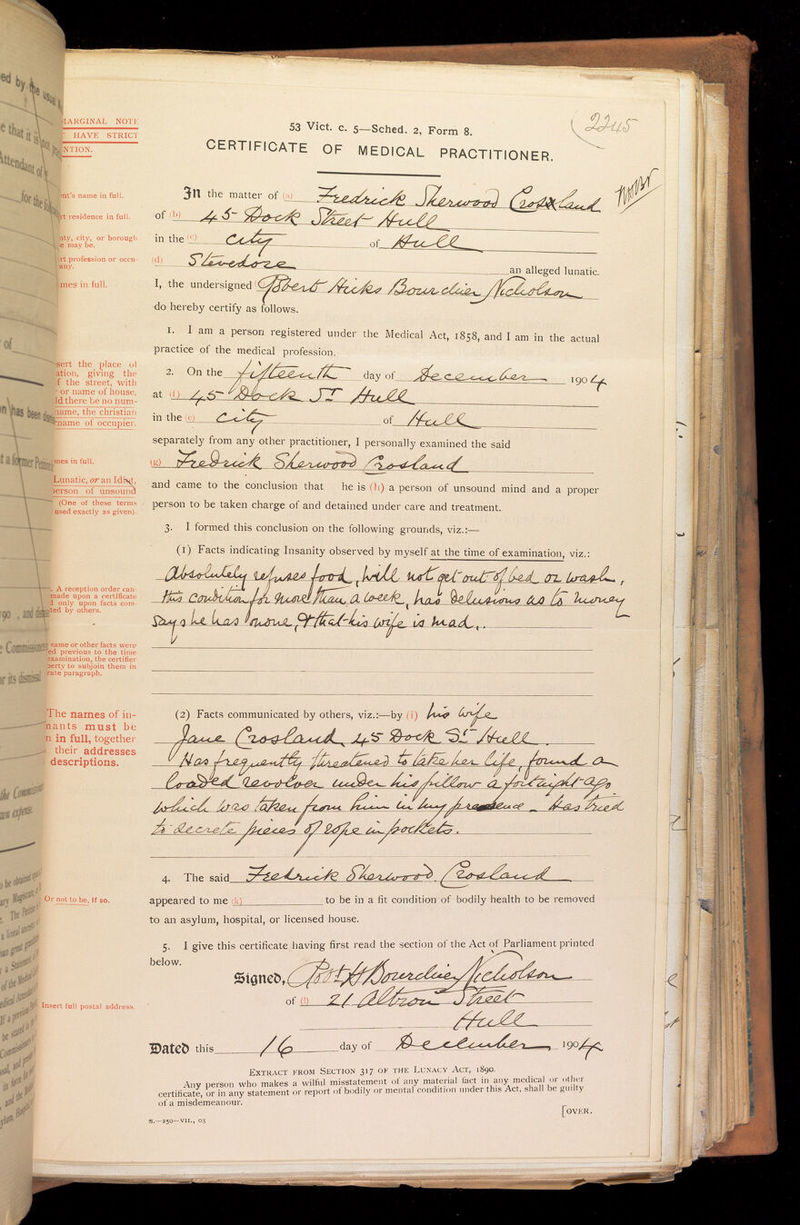 53 Vict. c. 5—Sched. 2, Form 8.
2245
CERTIFICATE OF MEDICAL PRACTITIONER.
MARGINAL NOTE
HAVE STRICT
NTION.
In the matter of (a) Fredrick Sherwood Crossland
of (b) 45 Dock Street Hull
in the (c) City of Hull
(d) Stevedore an alleged lunatic.
I, the undersigned Robert Hicks Bourchier Nicholson
do hereby certify as follows.
1. I am a person registered under the Medical Act, 1858, and I am in the actual
practice of the medical profession.
2. On the fifteenth day of December 1904
at (d) 45 Dock St Hull
in the (c) City of Hull
separately from any other practitioner, I personally examined the said
(g) Fredrick Sherwood Crosland
and came to the conclusion that he is (h) a person of unsound mind and a proper
person to be taken charge of and detained under care and treatment.
3. I formed this conclusion on the following grounds, viz.:—
(1) Facts indicating Insanity observed by myself at the time of examination, viz.:
Absolutely refuses food, will not get out of bed or wash,
this condition for more than a week, has delusions as to money
says he has none, & that his wife is mad.
(2) Facts communicated by others, viz.:—by (i) his wife
Jane Crosland, 45 Dock St Hull.
Has frequently threatened to take her life, found a
loaded revolver under his pillow a fortnight ago
which was taken from him in my presence - Has tried
to secrete pieces of rope in pockets.
4. The said Fredrick Sherwood Crosland
appeared to me (k) to be in a fit condition of bodily health to be removed
to an asylum, hospital, or licensed house.
5. I give this certificate having first read the section of the Act of Parliament printed
below.
Signed, Robt H Bourchier Nicholson
of (l) 21 Albion Street
Hull
Dated this 16 day of December 1904
EXTRACT FROM SECTION 317 OF THE LUNACY ACT, 1890.
Any person who makes a wilful misstatement of any material fact in any medical or other
certificate, or in any statement or report of bodily or mental condition under this Act, shall be guilty
of a misdemeanour.
[OVER.
S.—250—VII., 03
nt's name in full.
rt residence in full.
nty, city, or borough
e may be.
rt profession or occu-
any.
mes in full.
sert the place of
ation, giving the
f the street, with
or name of house,
ld there be no num-
name, the christian
rname of occupier.
mes in full.
Lunatic, or an Idiot,
person of unsound
(One of these terms
used exactly as given).
. A reception order can-
made upon a certificate
d only upon facts com-
ted by others.
same or other facts were
ed previous to the time
examination, the certifier
berty to subjoin them in
rate paragraph.
The names of in-
nants must be
n in full, together
their addresses
descriptions.
Or not to be, if so.
Insert full postal address.